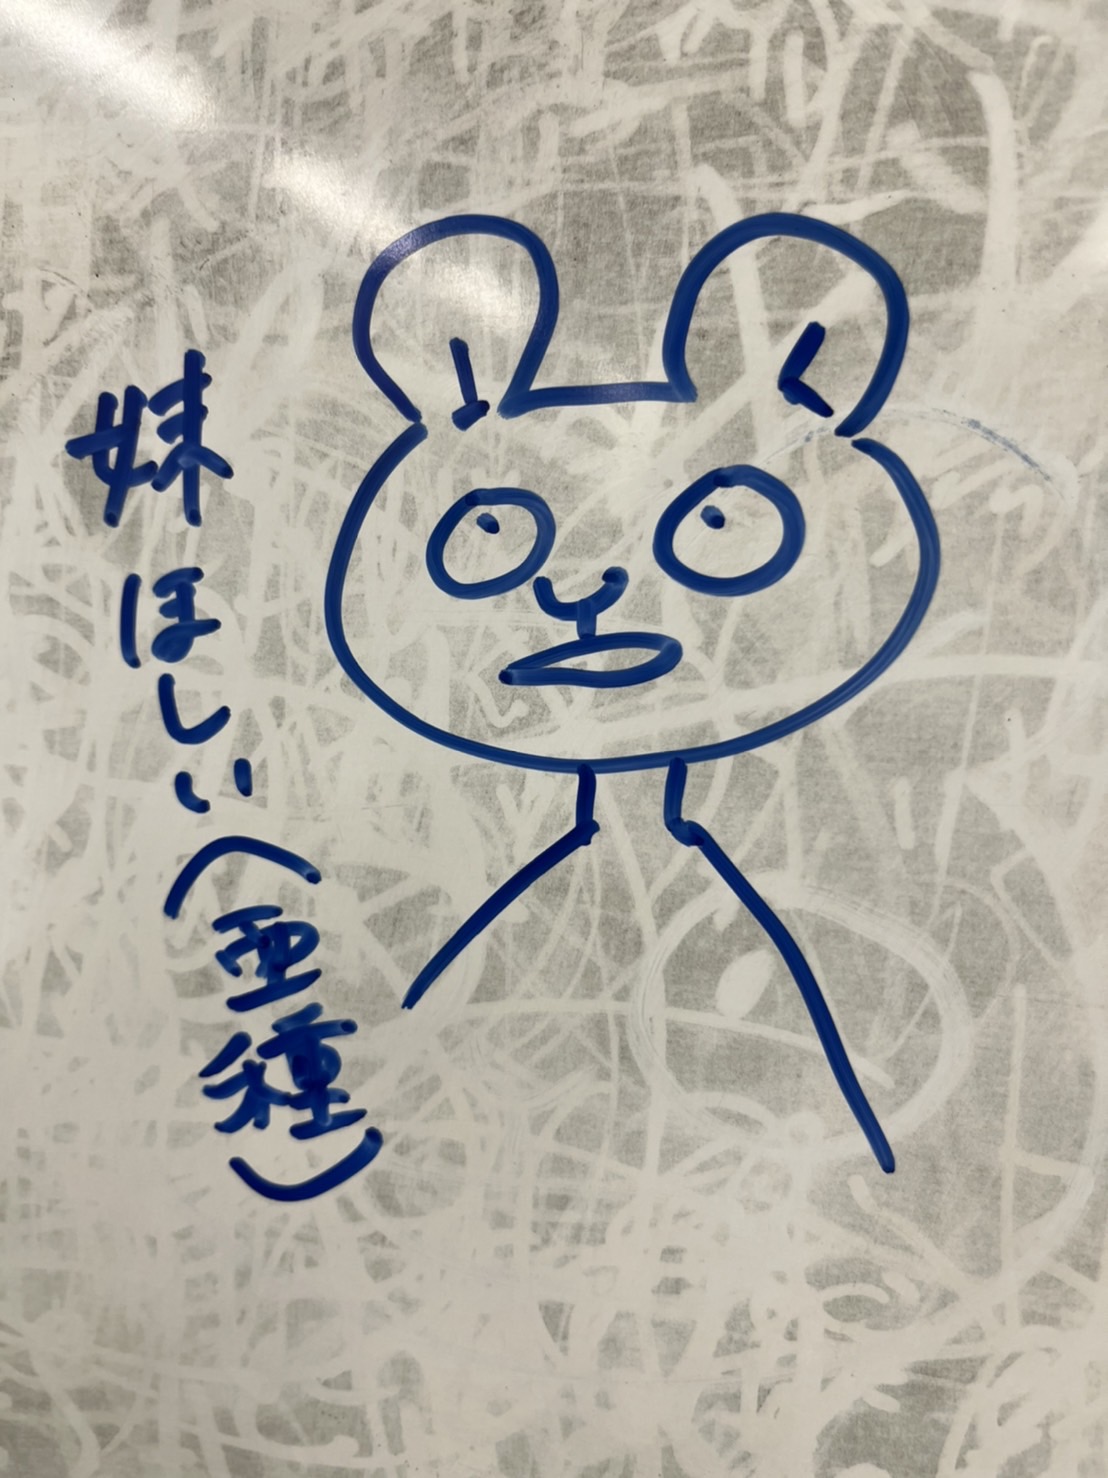 妹ほしい(亜種)